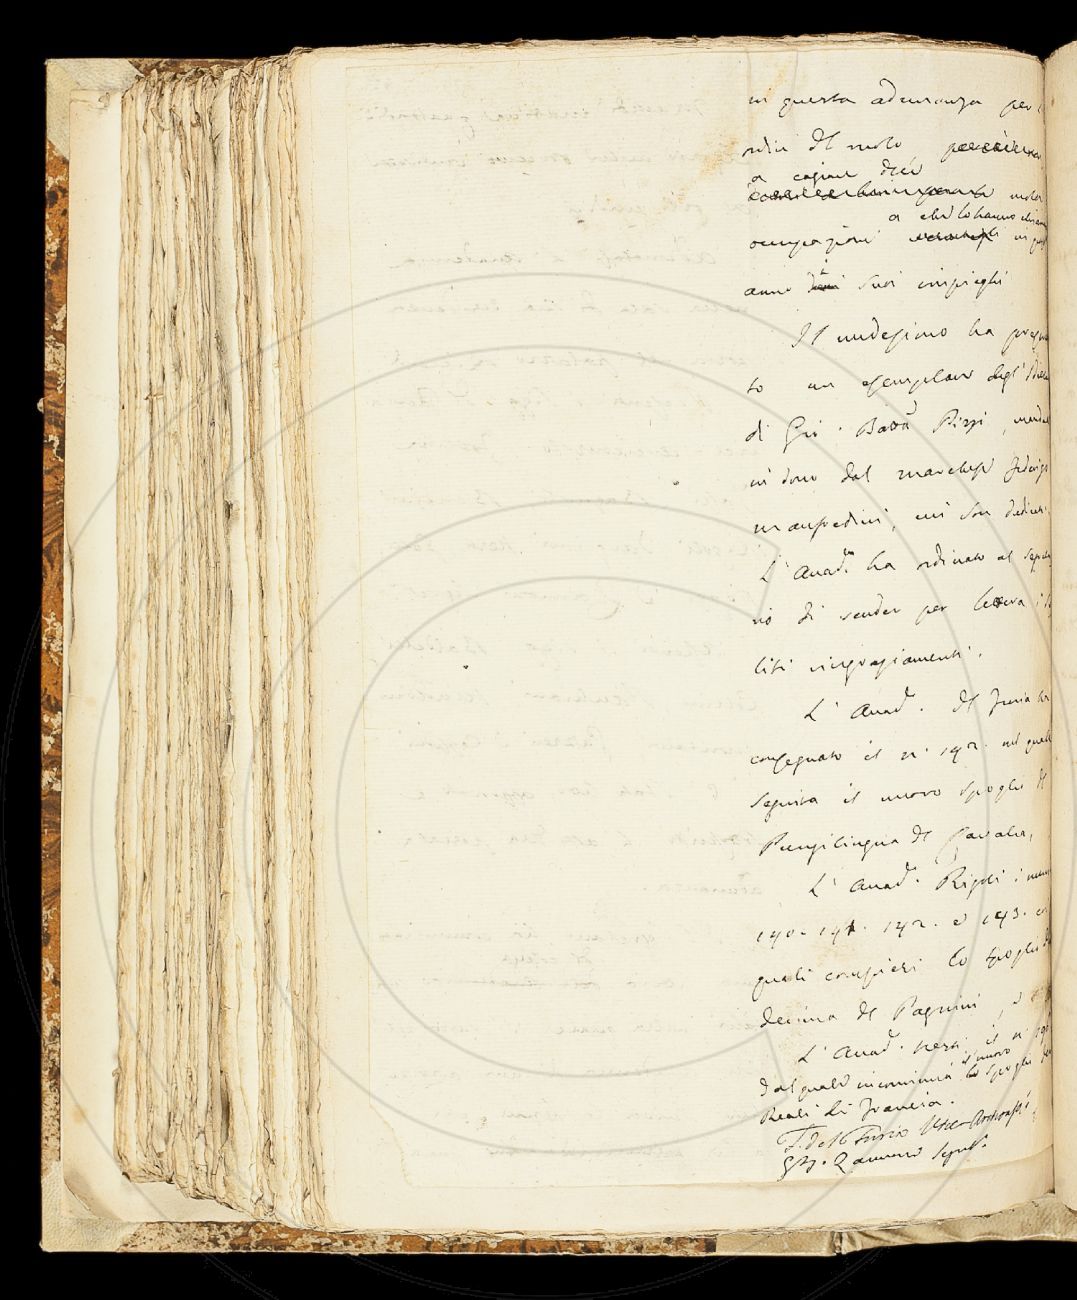 in questa adunanza per
ordin del ruolo
a cagion di
molte
a che lo hanno
occupazioni in
anno suoi impieghi
Il medesimo ha presen
to un esemplare degl'
di Gio. Batta Pizzi, manda
in dono dal marchese Federigo
Manfredini, cui son dedicati.
L' Accad.a ha ordinato al segreta
rio di render per lettera i so
liti ringraziamenti.
L' Accad. del Furia ha
consegnato il n. 192. nel quale
seguita il nuovo spoglio del
Pungilingua del Cavalca,
L' Accad. Rigoli i numeri
190. 191. 192. e 193. co
quali compiesi lo spoglio della
decima del Pagnini, e
L' Accad. Nesti il n.
dal quale incomincia il nuovo spoglio
Reali di Francia.
F. del Furia Vice-
G. B. Zannoni Segret.